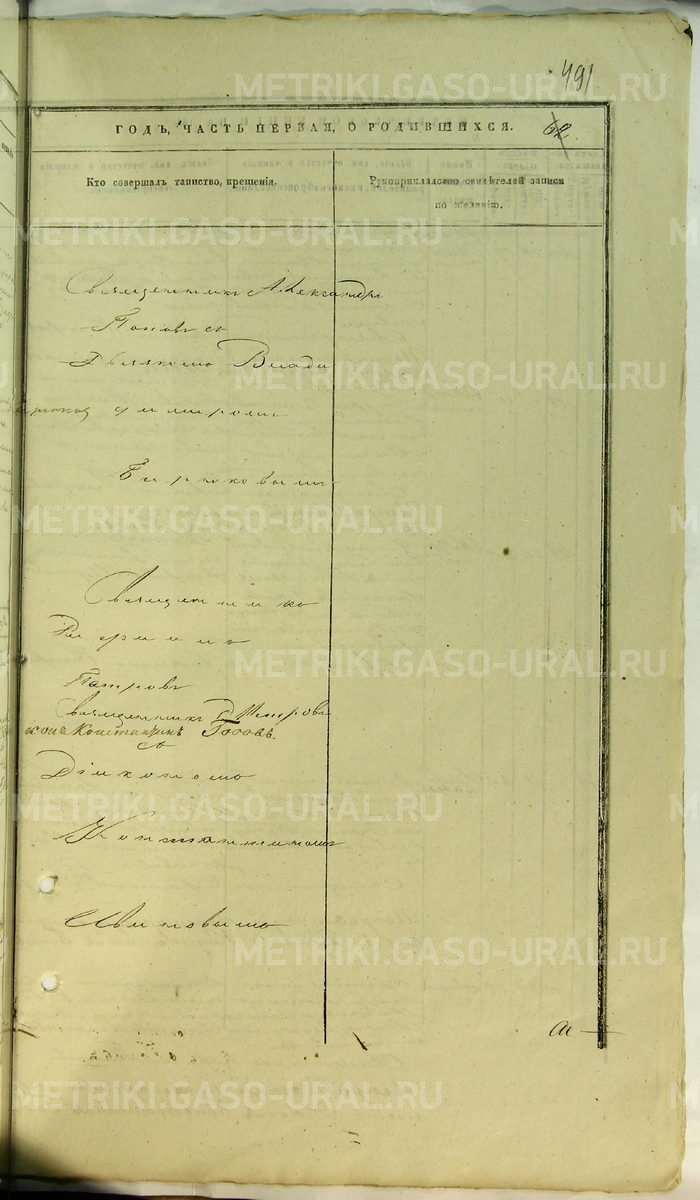 491
ГОДЪ, ЧАСТЬ ПЕРВАЯ, О РОДИВШИХСЯ. 62
Кто совершалъ таинство, крещенія.
Рукоприкладство свидѣтелей записи
по желанію.
Священникъ Александръ
Поповъ съ
Дьячкомъ Влади
диміромъ
Бирюковымъ
Священникъ
Фирминъ
Петровъ
Священникъ
Константинъ Поповъ.
съ
Діакономъ
Константиномъ
METRIKI.GASO-URAL.RU
METRIKI.GASO-URAL.RU
METRIKI.GASO-URAL.RU
METRIKI.GASO-URAL.RU
METRIKI.GASO-URAL.RU
METRIKI.GASO-URAL.RU
METRIKI.GASO-URAL.RU
METRIKI.GASO-URAL.RU